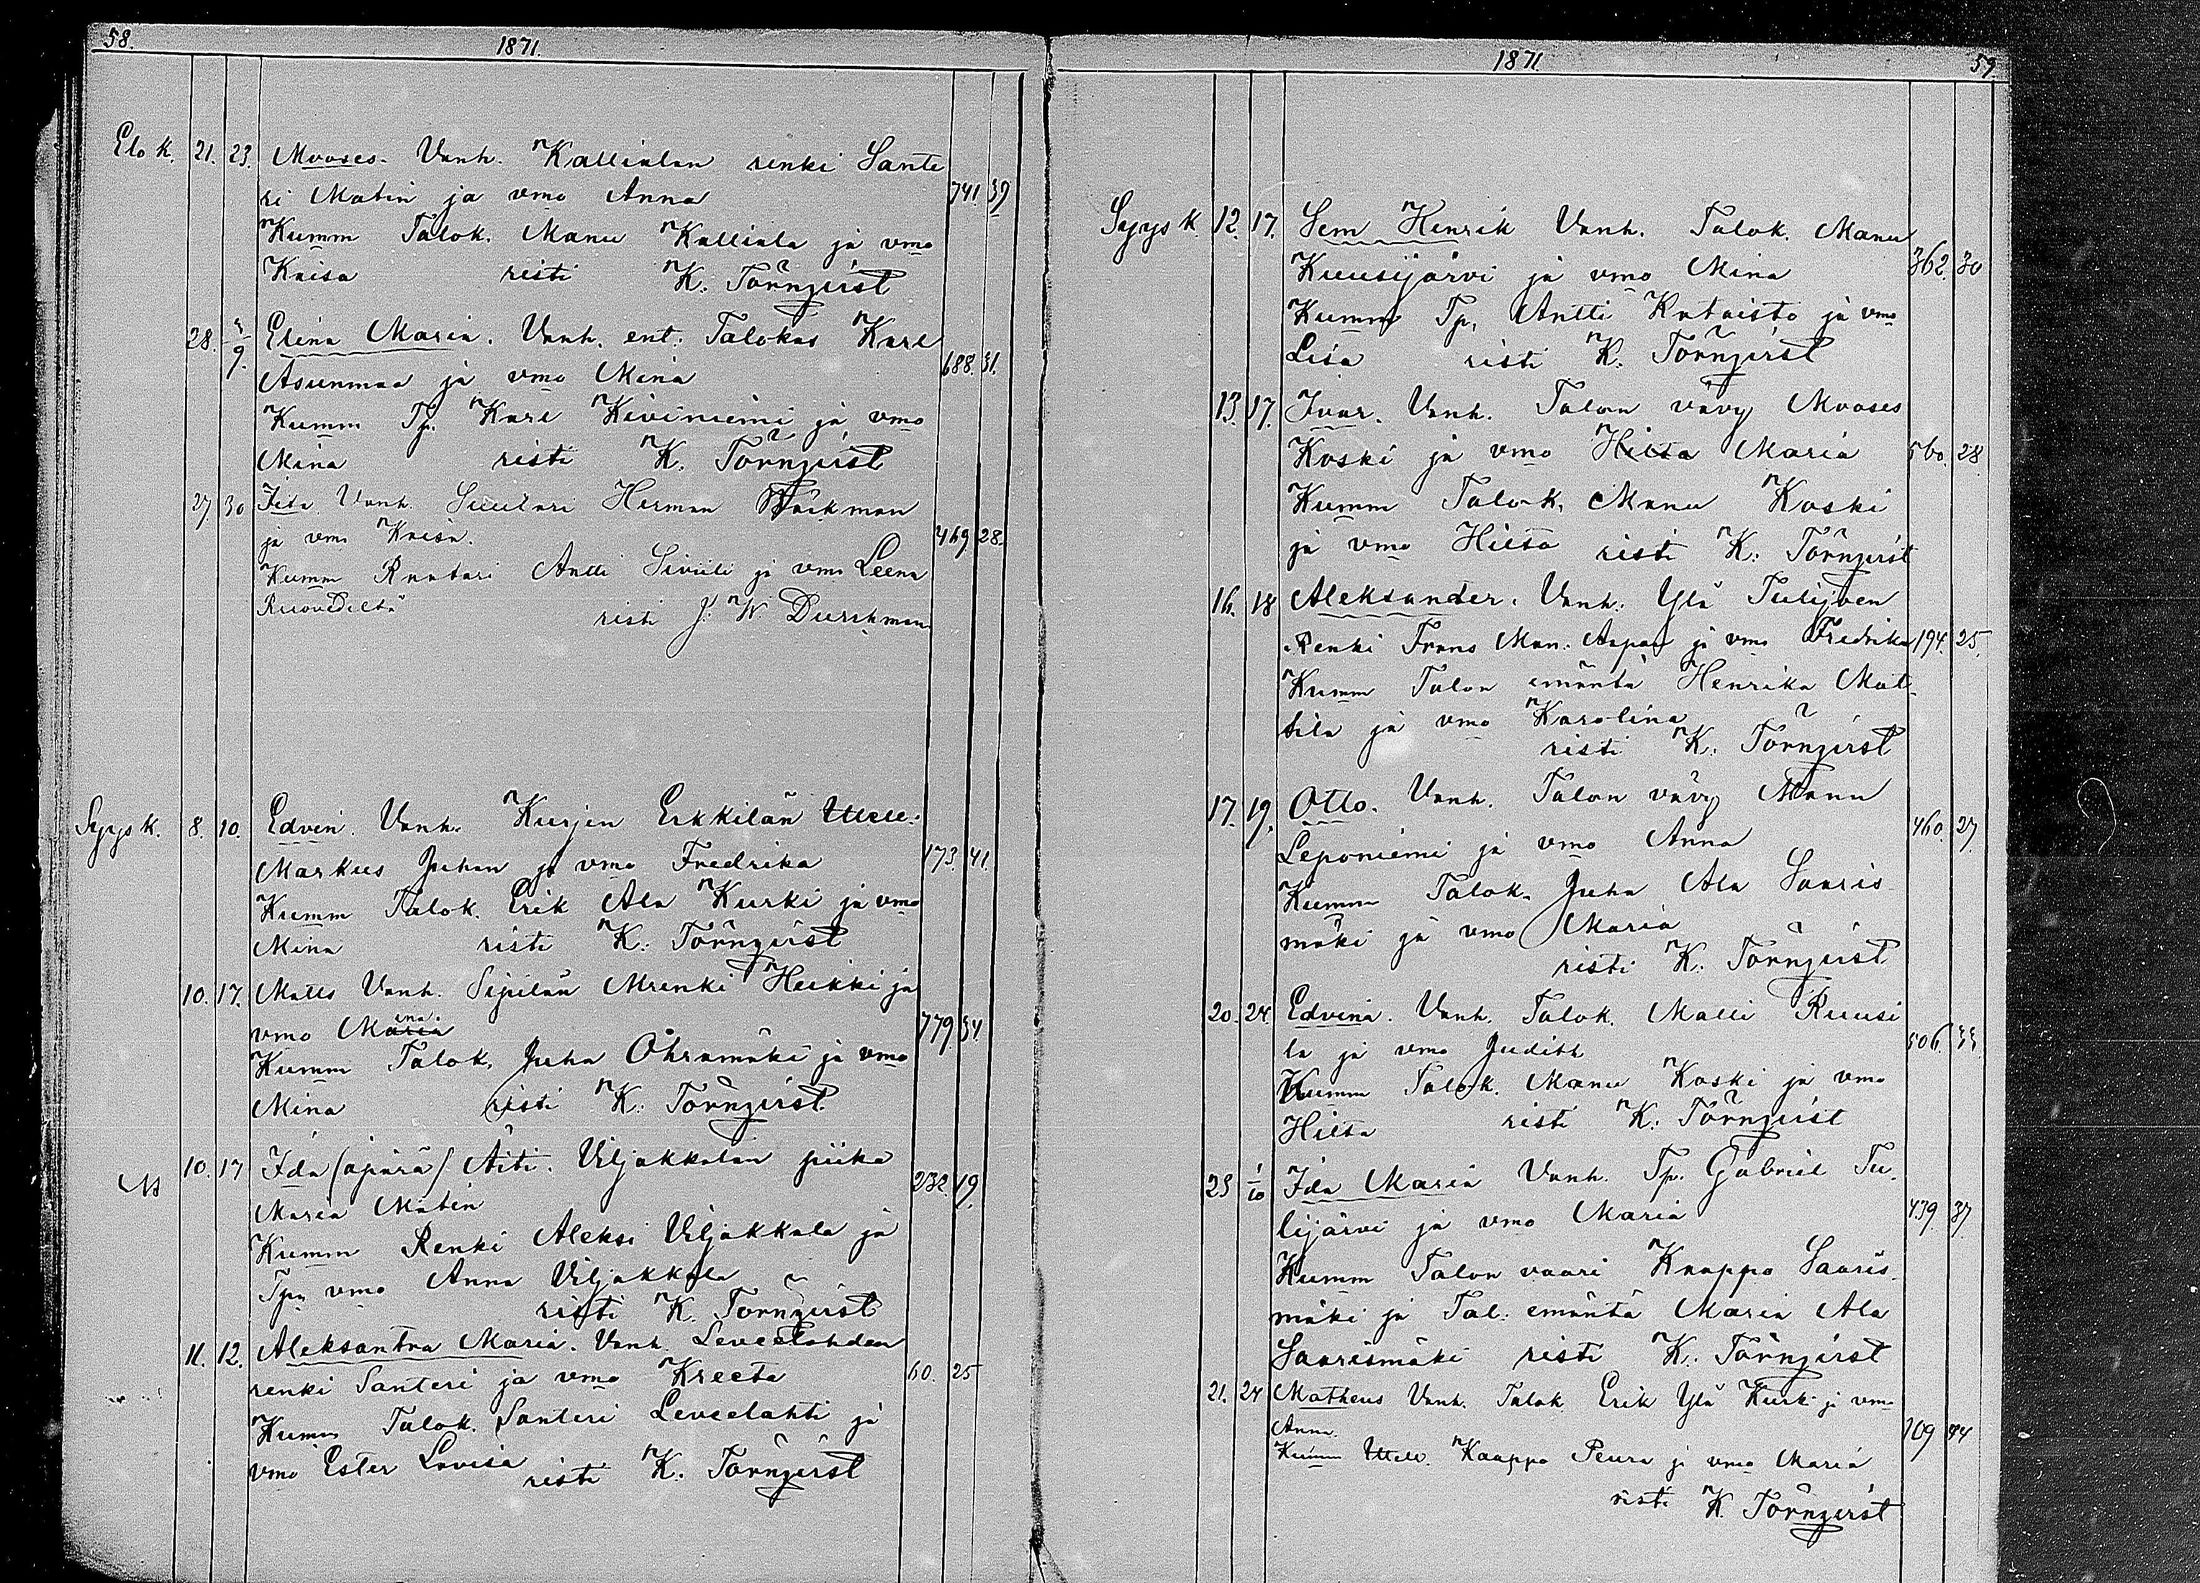 58.
1871.
Elo k. 21. 23. Mooses. Vanh. Kallialan renki Sante
ri Matin ja vmo Anna 741 39
Kumm Talok. Manu Kalliala ja vmo
Kaisa risti K. Törnqvist
28. 3/9. Elina Maria. Vanh. ent. Talokas Karl
Asunmaa ja vmo Mina 688. 31.
Kumm Tp. Karl Kiviniemi ja vmo
Mina risti K. Törnqvist
27 30 Iita Vanh. Suutari Herman
ja vmo Kaisa. 469 28.
Kumm Räätäri Antti Siviili ja vmo Leena
Ruovedeltä risti J. W. Durchman
Syys k. 8. 10. Edvin. Vanh. Kurjen Erkkilän
Markus Juhan ja vmo Fredrika 173. 41.
Kumm Talok. Erik Ala Kurki ja vmo
Mina risti K. Törnqvist
10. 17. Matts Vanh. Sipilän Mrenki Heikki ja
vmo Maria ina. 779 34
Kumm Talok. Juha Ohramäki ja vmo
Mina risti K. Törnqvist
10. 17 Ida (äpärä) Äiti. Viljakkalan piika
Maria Matin 232. 19.
Kumm Renki Aleksi Viljakkala ja
Tpn vmo Anna Viljakkala
risti K. Törnqvist
11. 12. Aleksantra Maria. Vanh. Leveelahden
renki Santeri ja vmo Kreeta 60. 25
Kumm Talok. Santeri Leveelahti ja
vmo Ester Lovisa risti K. Törnqvist
1871.
59.
Syys k. 12. 17. Sem Henrik Vanh. Talok. Manu
Kuusijärvi ja vmo Mina 362. 30
Kumm Tp. Antti Kataisto ja vmo
Lisa risti K. Törnqvist
13. 17. Ivar. Vanh. Talon vävy Mooses
Koski ja vmo Hilta Maria 560. 28
Kumm Talok. Manu Koski
ja vmo Hilta risti K. Törnqvist
16. 18 Aleksander. Vanh. Ylä Tulijoen
Renki Frans Man. ja vmo Fredrika 194. 25.
Kumm Talon emäntä Henrika Mat-
tila ja vmo Karolina
risti K. Törnqvist
17. 19. Otto. Vanh. Talon vävy Manu
Leponiemi ja vmo Anna 460. 27.
Kumm Talok. Juha Ala Saaris
mäki ja vmo Maria
risti K. Törnqvist
20. 24. Edvina. Vanh. Talok. Matti Ruusi
la ja vmo Judith 506. 33
Kumm Talok. Manu Koski ja vmo
Hilta risti K. Törnqvist
23 1/10 Ida Maria Vanh. Tp. Gabriel Tu.
lijärvi ja vmo Maria 439. 37.
Kumm Talon vaari Kaappo Saaris.
mäki ja Tal. emäntä Maria Ala
Saarismäki risti K. Törnqvist
21. 24 Matheus Vanh. Talok. Erik Ylä Kurki ja vmo
Anna. 109 44
Kumm Kaappo Peura ja vmo Maria
risti K. Törnqvist